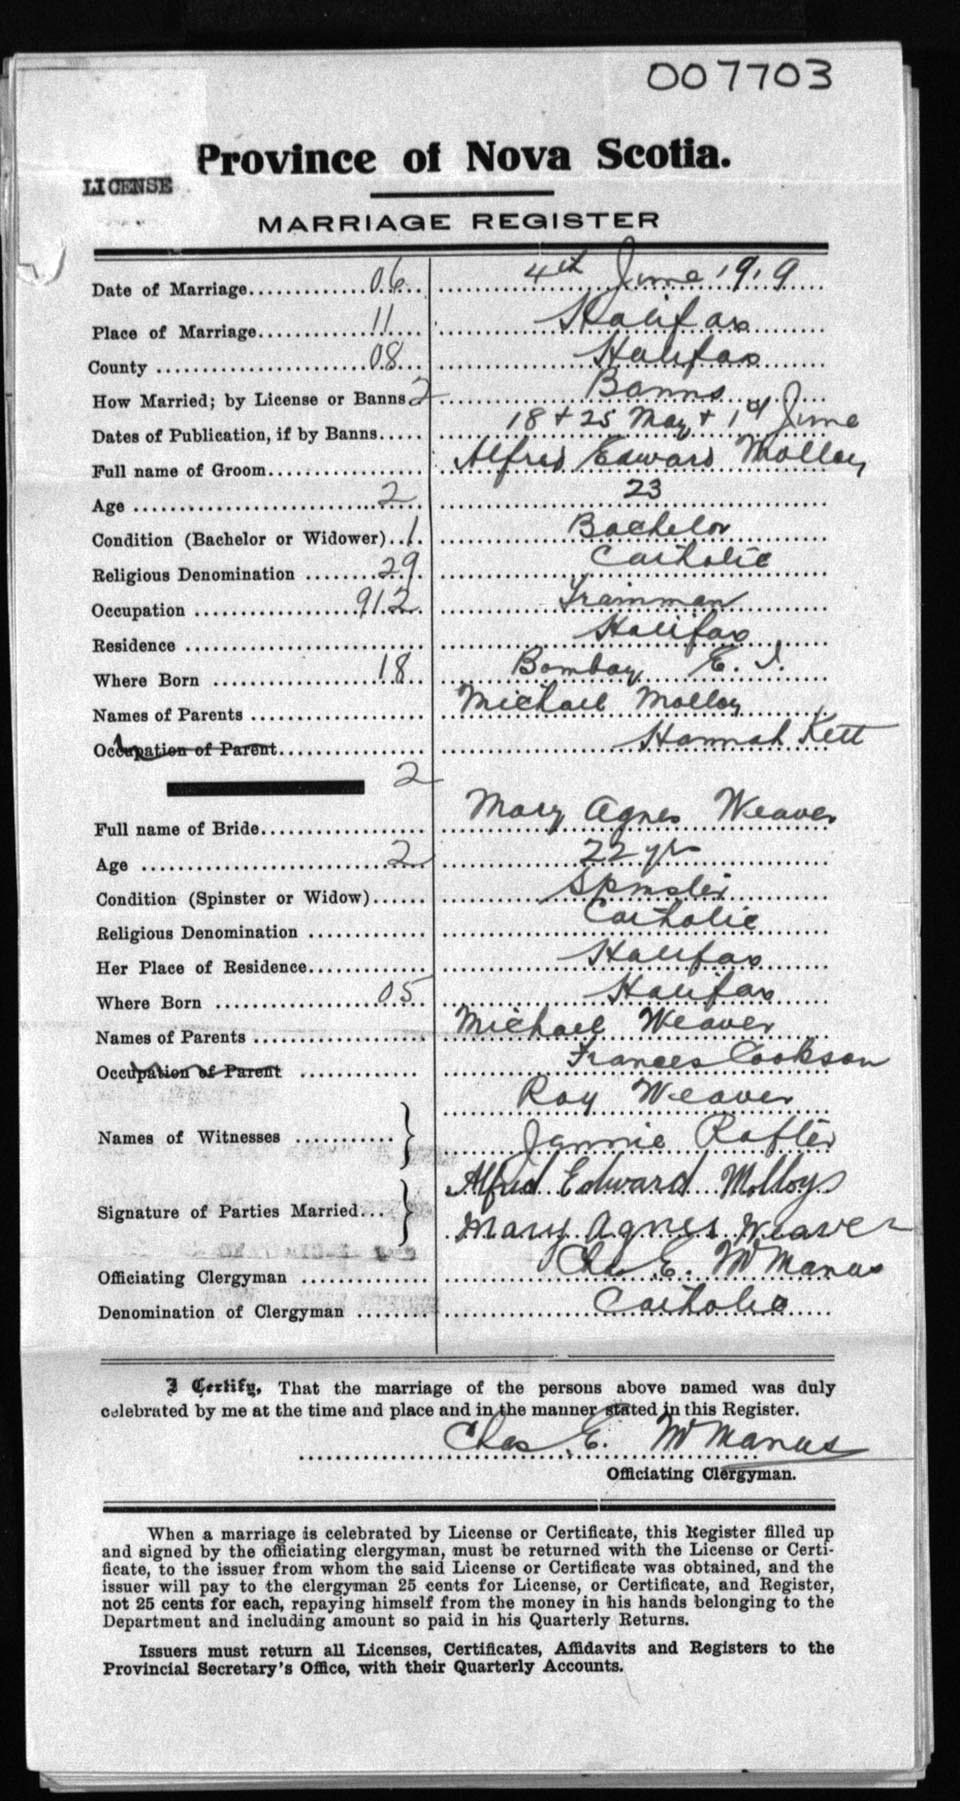 007703
Province of Nova Scotia.
LICENSE
MARRIAGE REGISTER
Date of Marriage 06 4th June 1919
Place of Marriage 11 Halifax
County 08 Halifax
How Married; by License or Banns 2 Banns
Dates of Publication, if by Banns 18 + 25 May + 1st June
Full name of Groom Alfred Edward Molloy
Age 2 23
Condition (Bachelor or Widower) 1 Bachelor
Religious Denomination 29 Catholic
Occupation 912 Trainman
Residence Halifax
Where Born 18 Bombay E. I.
Names of Parents Michael Molloy
Occupation of Parent Hannah Kett
2
Full name of Bride Mary Agnes Weaver
Age 2 22 yrs
Condition (Spinster or Widow) Spinster
Religious Denomination Catholic
Her Place of Residence Halifax
Where Born 05 Halifax
Names of Parents Michael Weaver
Occupation of Parent Frances Cookson
Roy Weaver
Names of Witnesses Jannie Rafter
Alfred Edward Molloy
Signature of Parties Married
Mary Agnes Weaver
Officiating Clergyman Chas E. McManus
Denomination of Clergyman Catholic
I Certify, That the marriage of the persons above named was duly
celebrated by me at the time and place and in the manner stated in this Register.
Chas E. McManus
Officiating Clergyman.
When a marriage is celebrated by License or Certificate, this Register filled up
and signed by the officiating clergyman, must be returned with the License or Certi-
ficate, to the issuer from whom the said License or Certificate was obtained, and the
issuer will pay to the clergyman 25 cents for License, or Certificate, and Register,
not 25 cents for each, repaying himself from the money in his hands belonging to the
Department and including amount so paid in his Quarterly Returns.
Issuers must return all Licenses, Certificates, Affidavits and Registers to the
Provincial Secretary's Office, with their Quarterly Accounts.